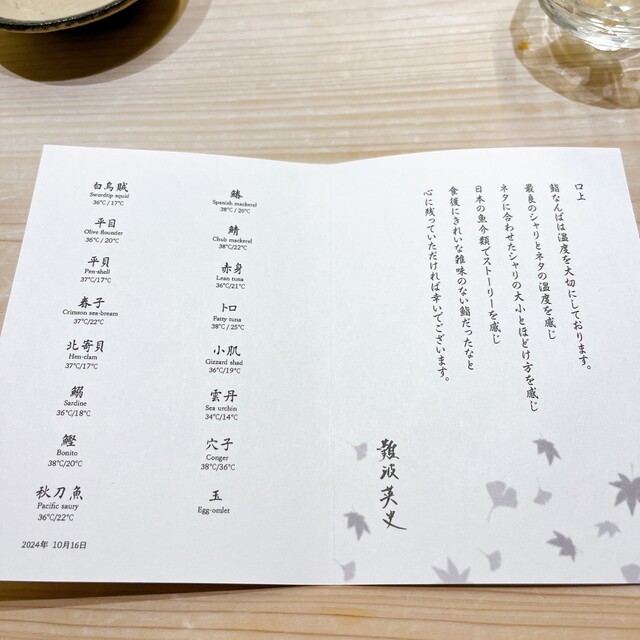 白烏賊
Swordtip squid
36℃/17℃
平目
Olive flounder
36℃/20℃
平貝
Pen-shell
37℃/17℃
春子
Crimson sea-bream
37℃/22℃
北寄貝
Hen-clam
37℃/17℃
鰯
Sardine
36℃/18℃
鰹
Bonito
38℃/20℃
秋刀魚
Pacific saury
36℃/22℃
2024年 10月16日
鰆
Spanish mackerel
38℃/20℃
鯖
Chub mackerel
38℃/22℃
赤身
Lean tuna
36℃/21℃
トロ
Fatty tuna
38℃/25℃
小肌
Gizzard shad
36℃/19℃
雲丹
Sea urchin
34℃/14℃
穴子
Conger
38℃/36℃
玉
Egg-omlet
口上
鮨なんばは温度を大切にしております。
最良のシャリとネタの温度を感じ
ネタに合わせたシャリの大小とほどけ方を感じ
日本の魚介類でストーリーを感じ
食後にきれいな雑味のない鮨だったなと
心に残っていただければ幸いでございます。
難波英史